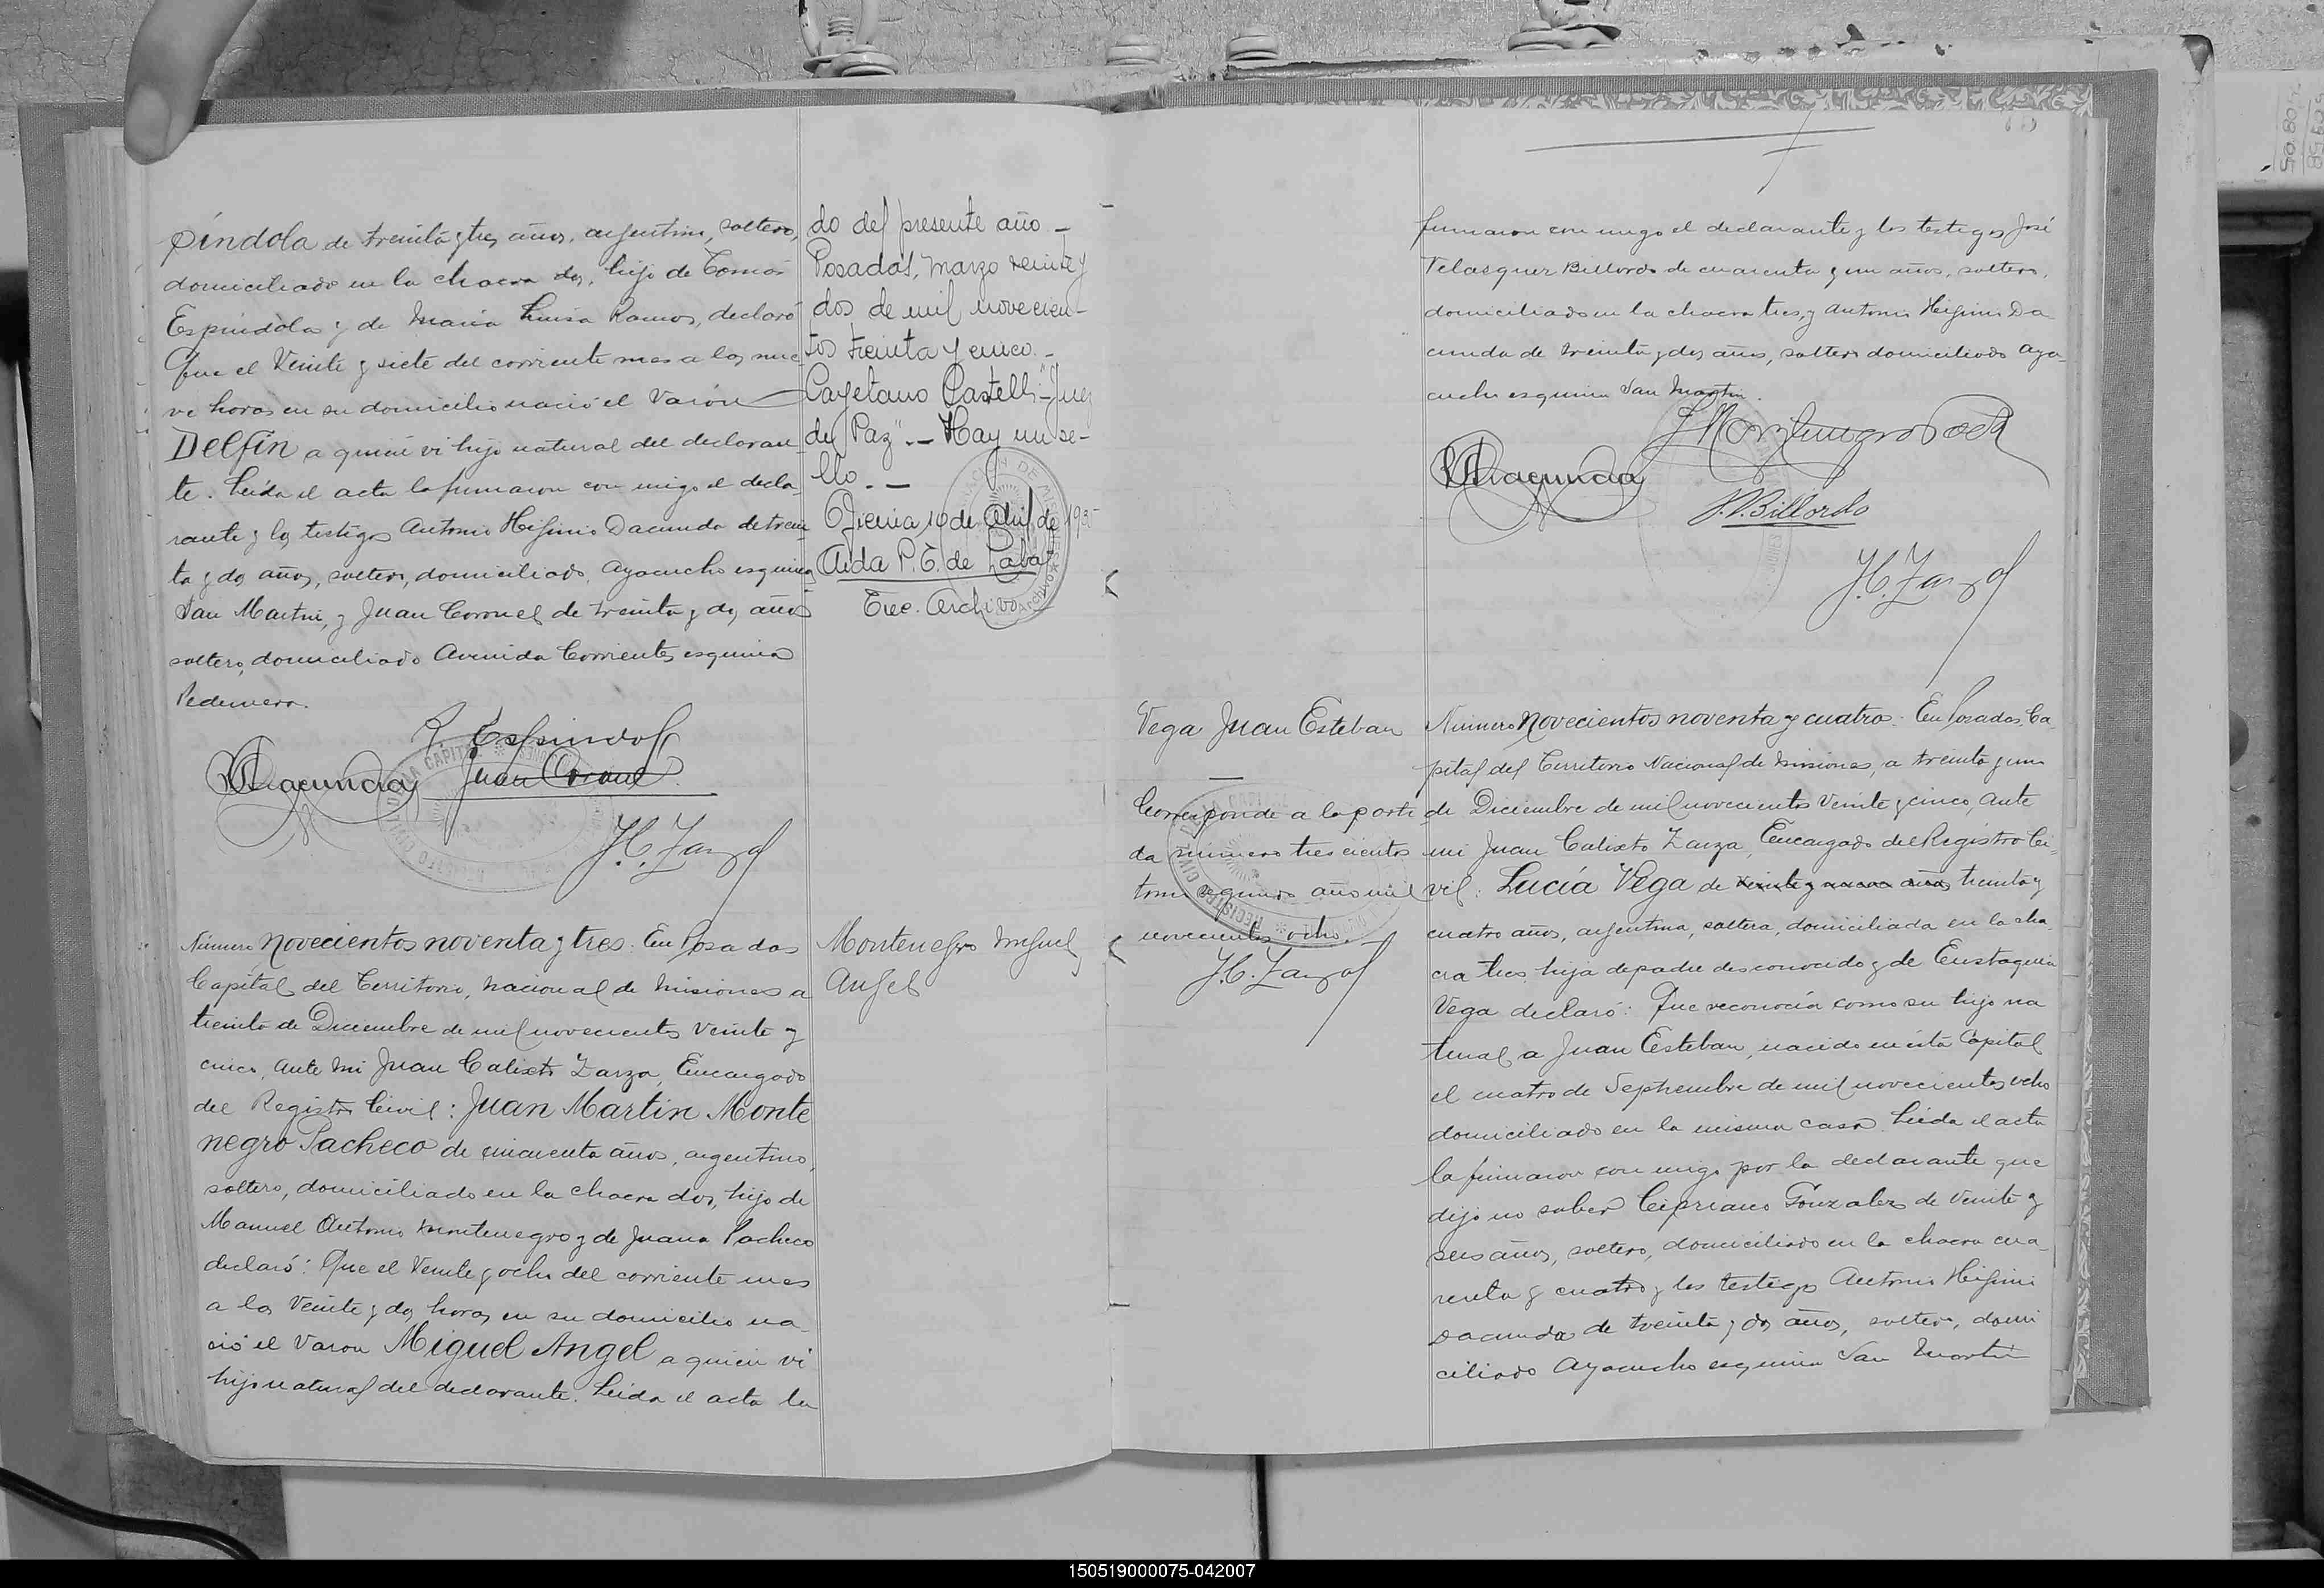 píndola de treinta y tres años, argentino, soltero,
domiciliado en la chacra dos, hijo de Tomás
Espíndola y de María Luisa Ramos, declaró
Que el Veinte y siete del corriente mes a las nue
ve horas en su domicilio nació el Varón
Delfín a quien vi hijo natural del declaran
te. Leída el acta la firmaron con migo el decla
rante y los testigos Antonio Higinio Dacunda de trein
ta y dos años, soltero, domiciliado Ayacucho esquina
San Martin, y Juan Coronel de treinta y dos años
soltero, domiciliado Avenida Corrientes esquina
Pedernera.
R. Espindola
Dacunda
Juan Coronel
J.C. Zarza
Número Novecientos noventa y tres. En Posadas
Capital del Territorio, Nacional de Misiones a
treinta de Diciembre de mil novecientos Veinte y
cinco, Ante mi Juan Calixto Zarza, Encargado
del Registro Civil: Juan Martin Monte
negro Pacheco de cincuenta años, argentino,
soltero, domiciliado en la chacra dos, hijo de
Manuel Antonio Montenegro y de Juana Pacheco
declaró: Que el Veinte y ocho del corriente mes
a las Veinte y dos horas en su domicilio na
ció el Varon Miguel Angel a quien vi
hijo natural del declarante. Leida el acta la
do del presente año _
Posadas, marzo veinte y
dos de mil novecien-
tos treinta y cinco._
Cayetano Castelli - Juez
de Paz". _ Hay un se-
llo. _
Oficina, 10 de Abril de 193
Aida P. T. de
Enc. Archivo
Montenegro Miguel
Angel
firmaron con migo el declarante y los testigos José
Velasquez Billordo de cuarenta y un años, soltero,
domiciliado en la chacra tres, y Antonio Higinio Da
cunda de treinta y dos años, soltero domiciliado Aya
cucho esquina San Martin.
J Montenegro Pach
Dacunda
J.V. Billordo
J.C. Zarza
Vega Juan Esteban
Corresponde a la parti
da número trescientos
tomo segundo año mil
novecientos ocho.
J.C. Zarza
Número Novecientos noventa y cuatro. En Posadas, Ca
pital del Territorio Nacional de Misiones, a treinta y un
de Diciembre de mil novecientos Veinte y cinco, Ante
mi Juan Calixto Zarza, Encargado del Registro Ci
vil: Lucía Vega de veinte y nueve años treinta y
cuatro años, argentina, soltera, domiciliada en la cha
cra tres, hija de padre desconocido y de Eustaquia
Vega declaró: Que reconocía como su hijo na
tural a Juan Esteban, nacido en ésta Capital
el cuatro de Septiembre de mil novecientos ocho
domiciliado en la misma casa. Leída el acta
la firmaron con migo por la declarante que
dijo no saber Cipriano Gonzalez de Veinte y
seis años, soltero, domiciliado en la chacra cua
renta y cuatro y los testigos Antonio Higinio
Dacunda de treinta y dos años, soltero, domi
ciliado Ayacucho esquina San Martin
150519000075-042007